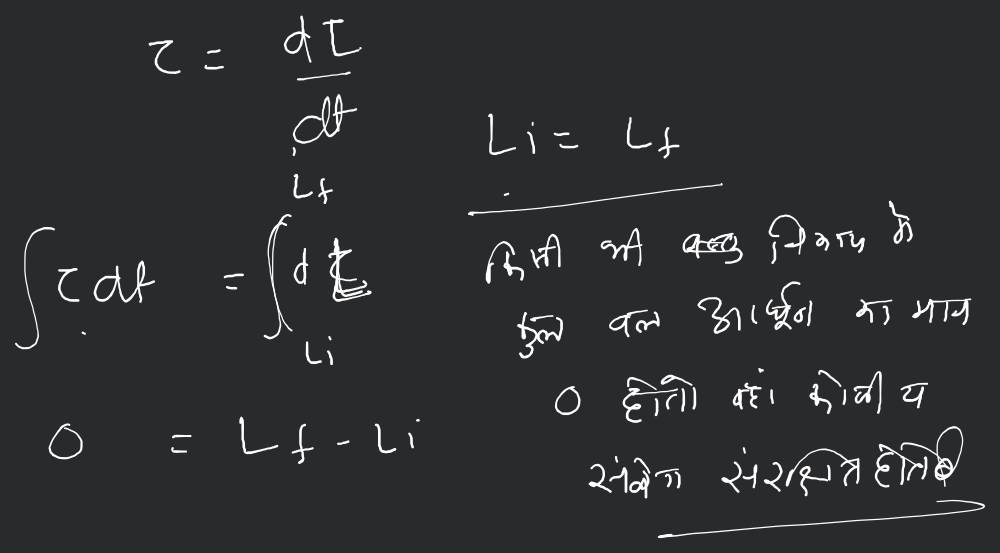 τ = dL/dt
∫τ dt = ∫_{Li}^{Lf} dL
0 = Lf - Li
Li = Lf
किसी भी निकाय के
कुल बल आर्घूण का मान
0 हो तो वहां कोणीय
संवेग संरक्षित होता है